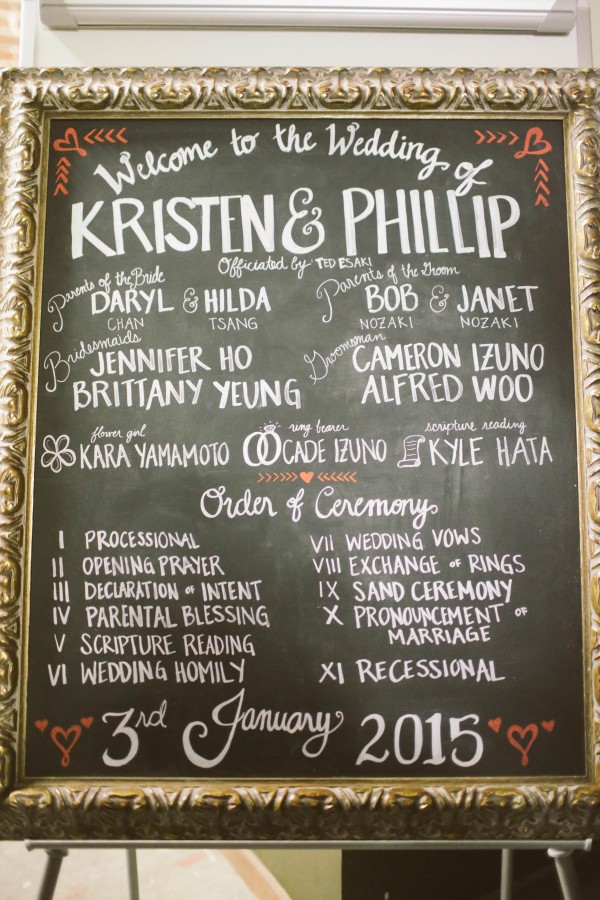 Welcome to the Wedding of
KRISTEN & PHILLIP
Officiated by TED ESAKI
Parents of the Bride
DARYL & HILDA
CHAN TSANG
Parents of the Groom
BOB & JANET
NOZAKI NOZAKI
Bridesmaids
JENNIFER HO
BRITTANY YEUNG
Groomsman
CAMERON IZUNO
ALFRED WOO
flower girl
KARA YAMAMOTO
ring bearer
CADE IZUNO
scripture reading
KYLE HATA
Order of Ceremony
I PROCESSIONAL
II OPENING PRAYER
III DECLARATION of INTENT
IV PARENTAL BLESSING
V SCRIPTURE READING
VI WEDDING HOMILY
VII WEDDING VOWS
VIII EXCHANGE of RINGS
IX SAND CEREMONY
X PRONOUNCEMENT OF
MARRIAGE
XI RECESSIONAL
3rd January 2015